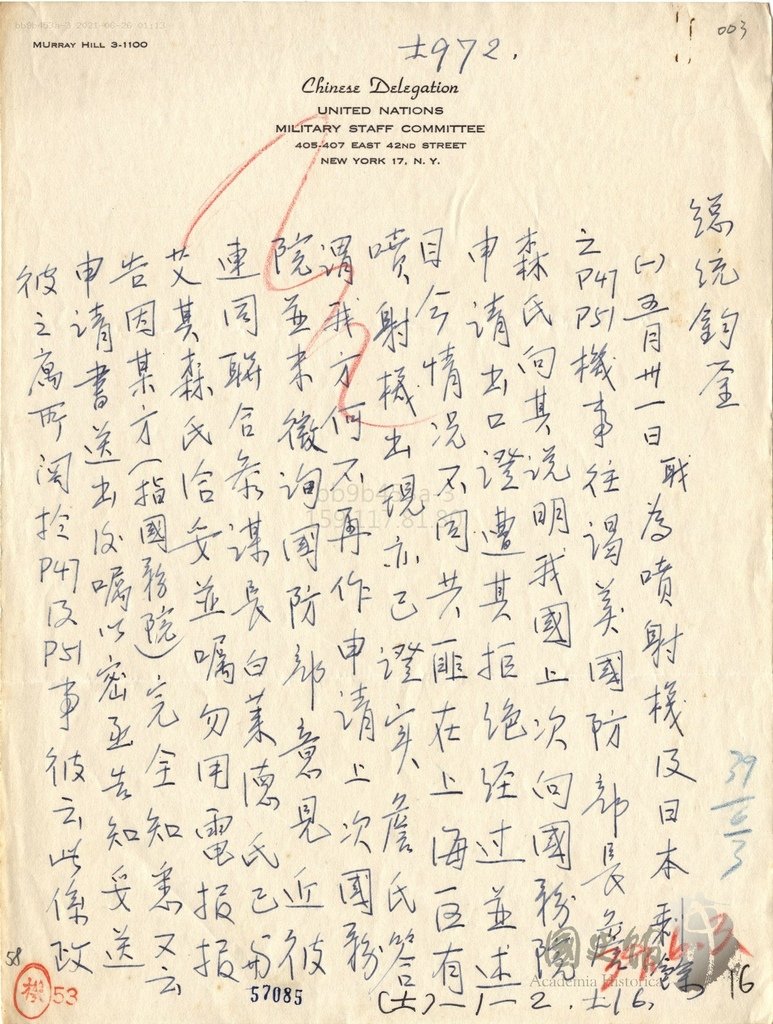 bb9b453a-3 2021-06-26 01:13
003
MURRAY HILL 3-1100
士972.
Chinese Delegation
UNITED NATIONS
MILITARY STAFF COMMITTEE
405-407 EAST 42ND STREET
NEW YORK 17, N. Y.
總統鈞鑒
(一)五月卅一日職為噴射機及日本剩餘
之P47 P51機事往謁美國防部長詹
森氏向其說明我國上次向國務院
申請出口證遭其拒絕經过並述
目今情况不同共匪在上海区有
噴射機出現亦已證实詹氏答
謂我方何不再作申請上次國務
院並未徵詢國防部意見近彼
連同聯合參謀長白萊德氏已与
艾其森氏洽妥並囑勿用電报报
告因某方(指國務院)完全知悉又云
申請書送出後囑以密函告知妥送
彼之寓所関於P47及P51事彼云此係政
39/6/3
國史館
Academia Historica
bb9b453a-3
58
機
53
57085
(士)—1—2.士16.
16